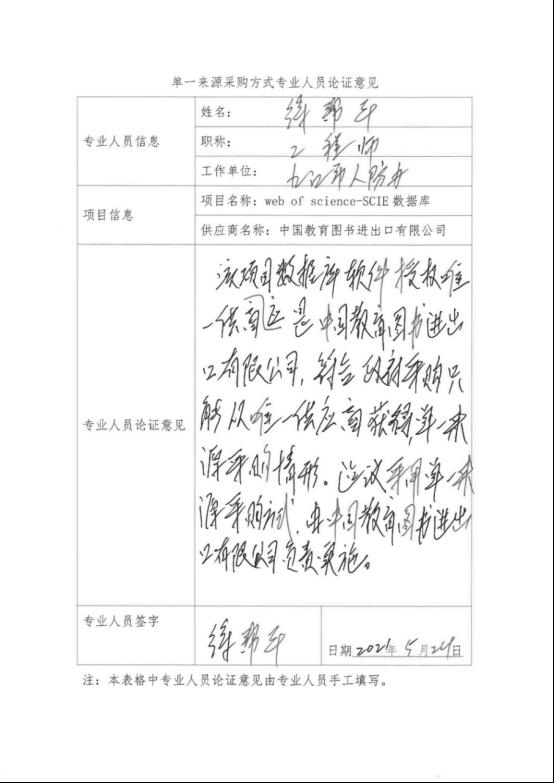 单一来源采购方式专业人员论证意见
专业人员信息
姓名：徐帮平
职称：工程师
工作单位：九江市人防办
项目信息
项目名称：web of science-SCIE 数据库
供应商名称：中国教育图书进出口有限公司
专业人员论证意见
该项目数据库软件授权唯
一供应商是中国教育图书进出
口有限公司，符合政府采购只
能从唯一供应商获得，单一来
源采购情形。建议采用单一来
源采购方式，由中国教育图书进出
口有限公司负责实施。
专业人员签字
徐帮平
日期 2021年 5月 24日
注：本表格中专业人员论证意见由专业人员手工填写。